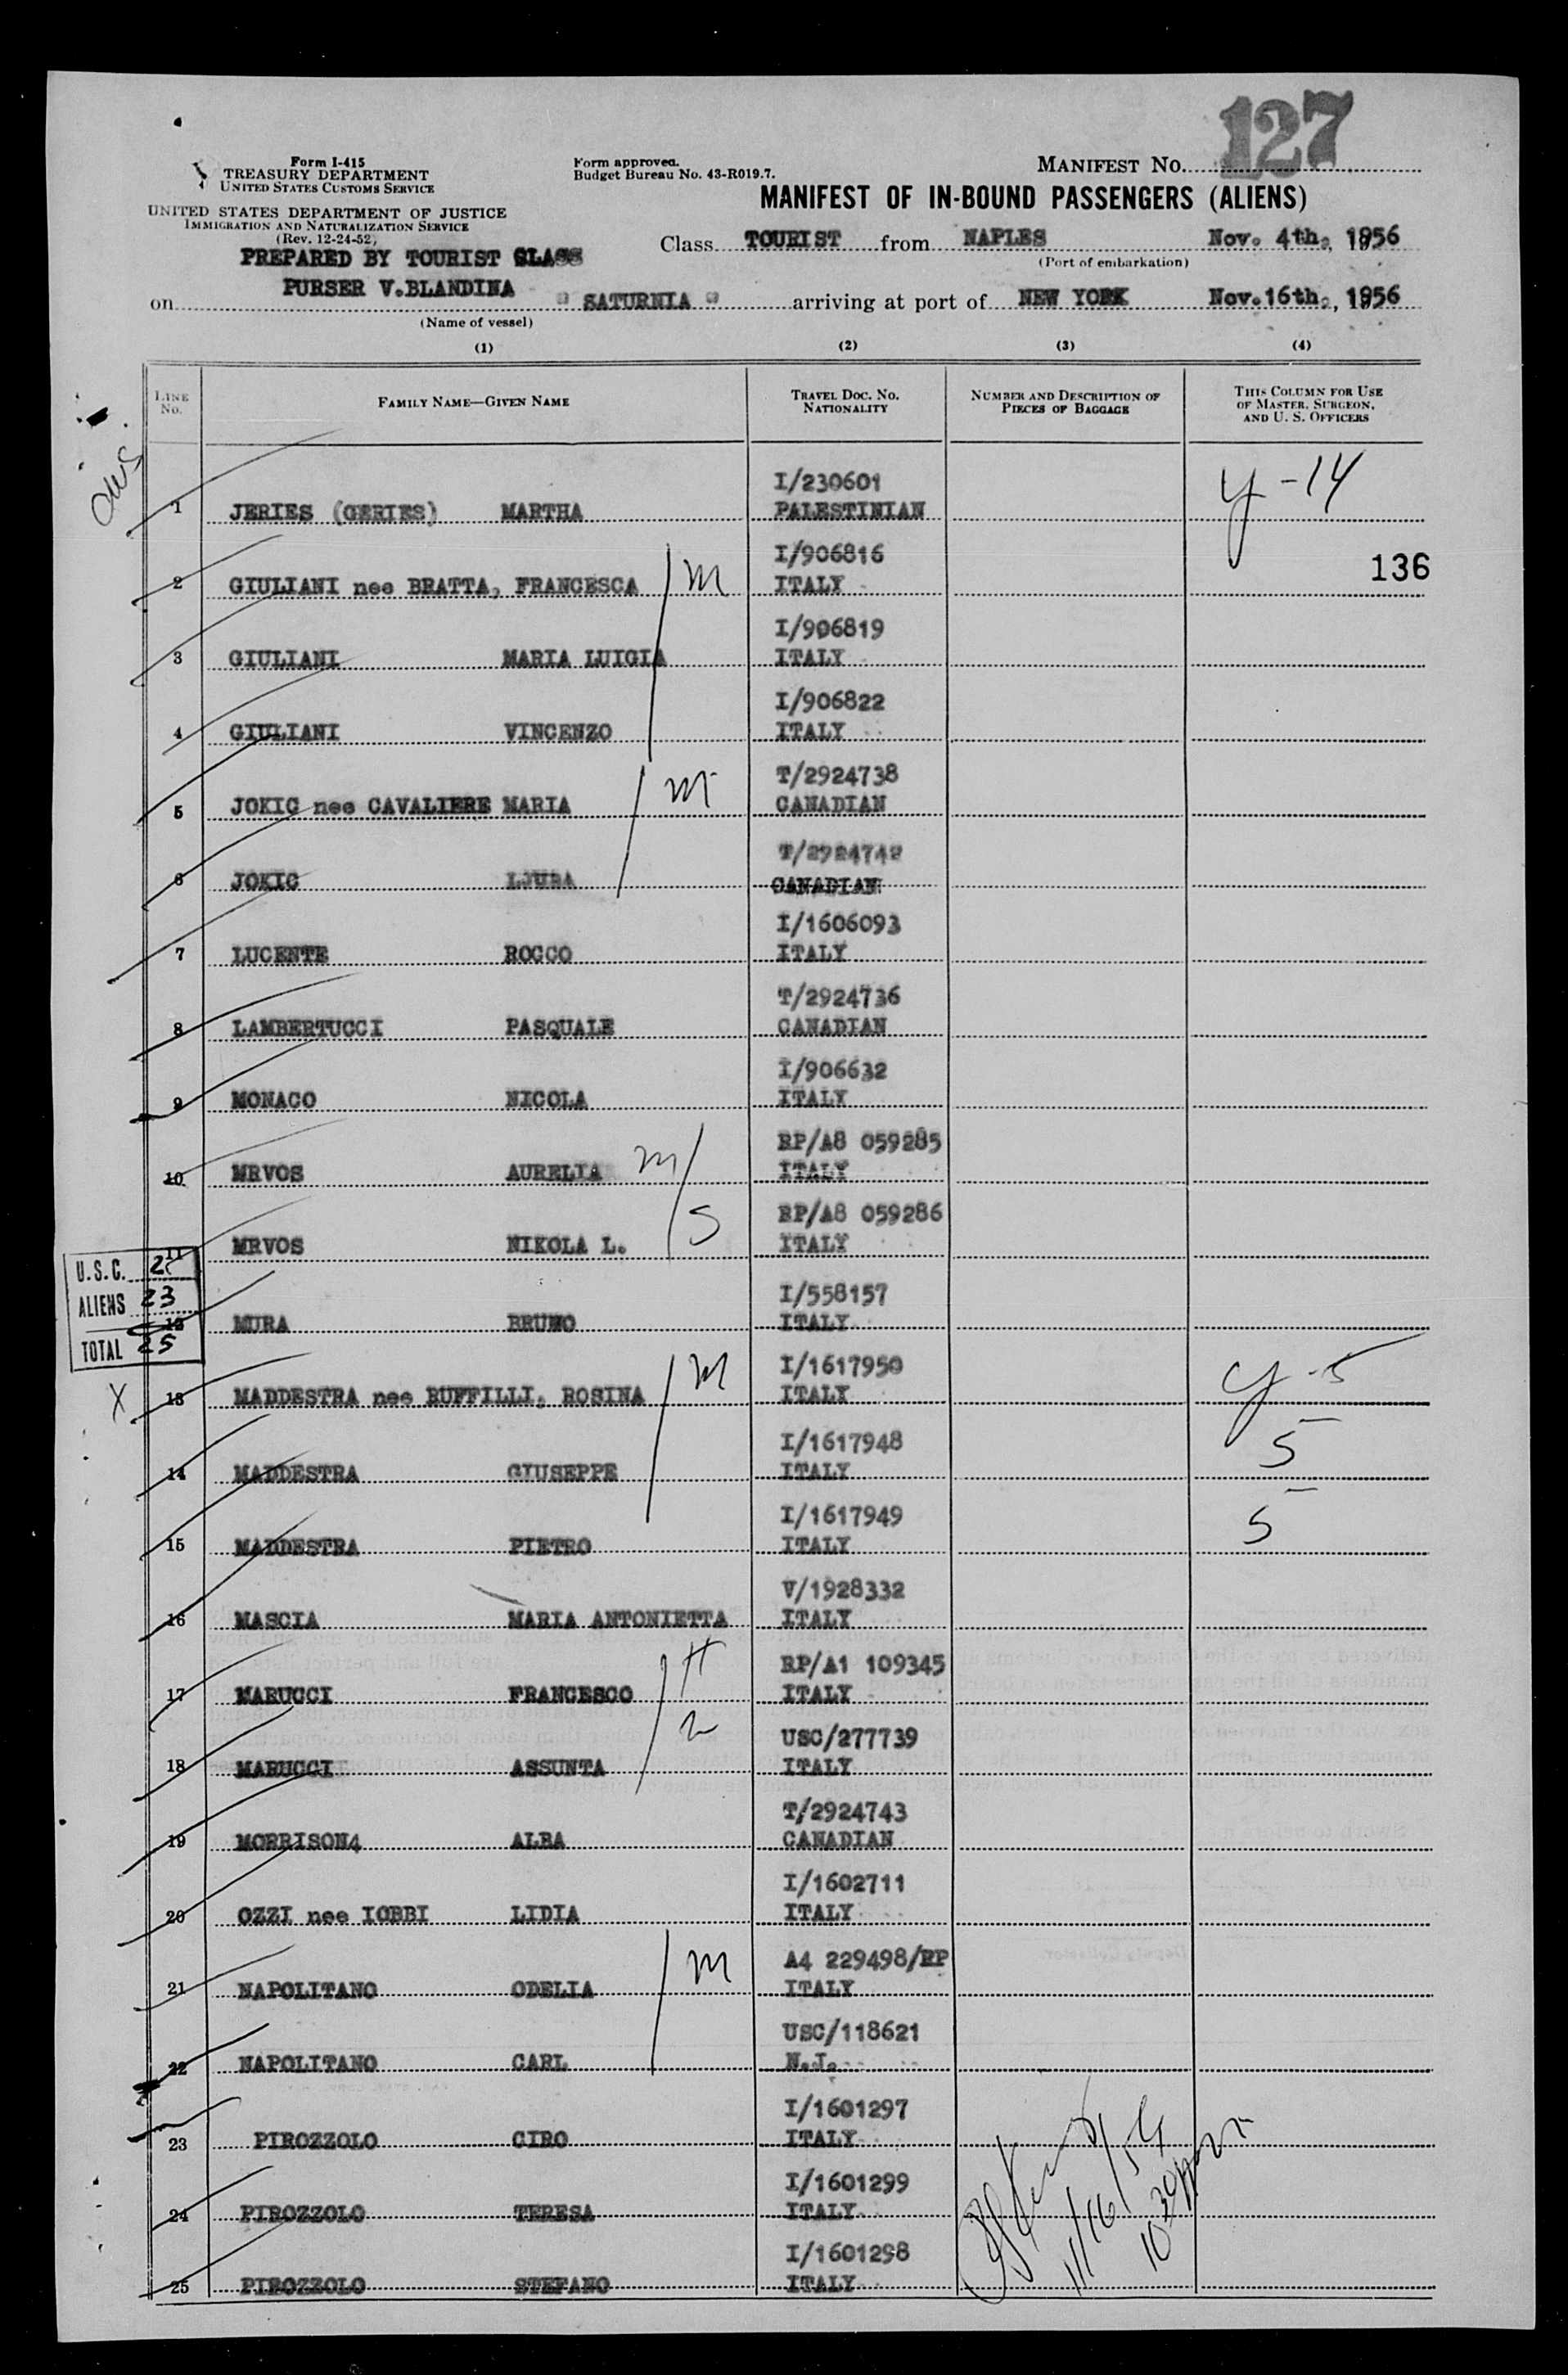 127
Form I-415
TREASURY DEPARTMENT
UNITED STATES CUSTOMS SERVICE
Form approved.
Budget Bureau No. 43-R019.7.
MANIFEST NO.
MANIFEST OF IN-BOUND PASSENGERS (ALIENS)
UNITED STATES DEPARTMENT OF JUSTICE
IMMIGRATION AND NATURALIZATION SERVICE
(Rev. 12-24-52)
PREPARED BY TOURIST CLASS
PURSER V.BLANDINA
Class TOURIST from NAPLES Nov. 4th, 1956
(Port of embarkation)
on " SATURNIA " arriving at port of NEW YORK Nov.16th, 1956
(Name of vessel)
(1) (2) (3) (4)
LINE No. FAMILY NAME—GIVEN NAME TRAVEL DOC. NO. NATIONALITY NUMBER AND DESCRIPTION OF PIECES OF BAGGAGE THIS COLUMN FOR USE OF MASTER, SURGEON, AND U. S. OFFICERS
I/230601 y-14
1 JERIES (GERIES) MARTHA PALESTINIAN
I/906816 136
2 GIULIANI nee BRATTA, FRANCESCA m ITALY
I/906819
3 GIULIANI MARIA LUIGIA ITALY
I/906822
4 GIULIANI VINCENZO ITALY
T/2924738
5 JOKIC nee CAVALIERE MARIA m CANADIAN
T/2924742
6 JOKIC LJUBA CANADIAN
I/1606093
7 LUCENTE ROCCO ITALY
T/2924736
8 LAMBERTUCCI PASQUALE CANADIAN
I/906632
9 MONACO NICOLA ITALY
RP/A8 059285
10 MRVOS AURELIA m ITALY
RP/A8 059286
11 MRVOS NIKOLA L. S ITALY
U.S.C. 2
ALIENS 23
TOTAL 25
I/558157
12 MURA BRUNO ITALY
I/1617950
X 13 MADDESTRA nee RUFFILLI, ROSINA M ITALY y-5
I/1617948
14 MADDESTRA GIUSEPPE ITALY 5
I/1617949
15 MADDESTRA PIETRO ITALY 5
V/1928332
16 MASCIA MARIA ANTONIETTA ITALY
RP/A1 109345
17 MARUCCI FRANCESCO H ITALY
USC/277739
18 MARUCCI ASSUNTA 2 ITALY
T/2924743
19 MORRISON4 ALBA CANADIAN
I/1602711
20 OZZI nee IOBBI LIDIA ITALY
A4 229498/RP
21 NAPOLITANO ODELIA m ITALY
USC/118621
22 NAPOLITANO CARL N.J.
I/1601297
23 PIROZZOLO CIRO ITALY
I/1601299
24 PIROZZOLO TERESA ITALY
I/1601298
25 PIROZZOLO STEFANO ITALY
11/16/56